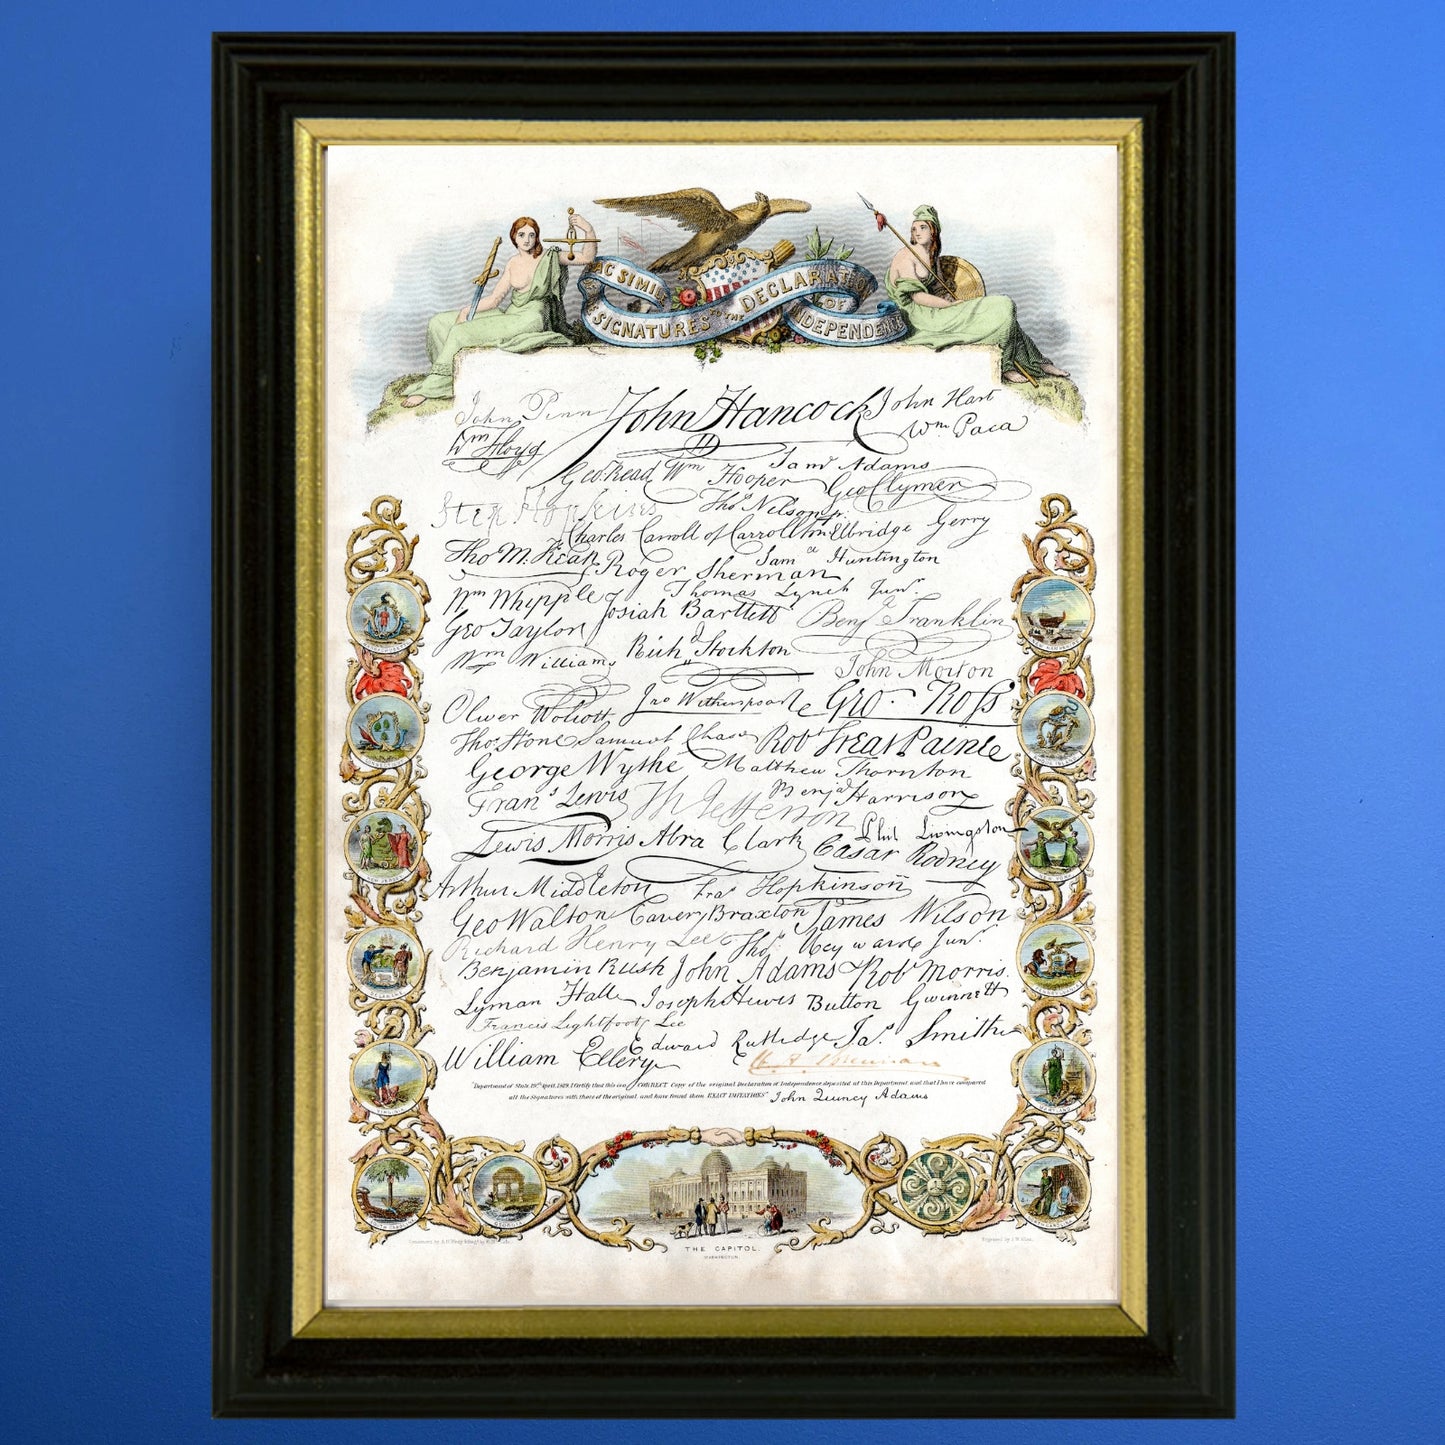 FAC SIMILE
OF THE SIGNATURES TO THE
DECLARATION
OF
INDEPENDENCE
John Penn John Hancock John Hart
Wm Floyd Wm Paca
Geo. Read Wm Hooper Saml Adams
Geo Clymer
Step Hopkins Thos Nelson jr.
Charles Carroll of Carrollton Elbridge Gerry
Tho M:Kean Roger Sherman Saml Huntington
Wm Whipple Thomas Lynch Junr.
Josiah Bartlett Benja Franklin
Geo Taylor
Wm Williams Richd Stockton John Morton
Oliver Wolcott Jno Witherspoon Geo. Ross
Thos Stone Samuel Chase Robt Treat Paine
George Wythe Matthew Thornton
Frans Lewis Th Jefferson Benja Harrison
Lewis Morris Abra Clark Phil Livingston
Casar Rodney
Arthur Middleton Fras Hopkinson
Geo Walton Carter Braxton James Wilson
Richard Henry Lee Thos Heyward Junr.
Benjamin Rush John Adams Robt Morris.
Lyman Hall Joseph Hewes Button Gwinnett
Francis Lightfoot Lee
William Ellery Edward Rutledge Jas. Smith
"Department of State 19th April, 1819. I Certify that this is a CORRECT Copy of the original Declaration of Independence deposited at this Department and that I have compared
all the Signatures with those of the original and have found them EXACT IMITATIONS" John Quincy Adams
NEW JERSEY
DELAWARE
VIRGINIA
GEORGIA
NEW YORK
THE CAPITOL.
WASHINGTON.